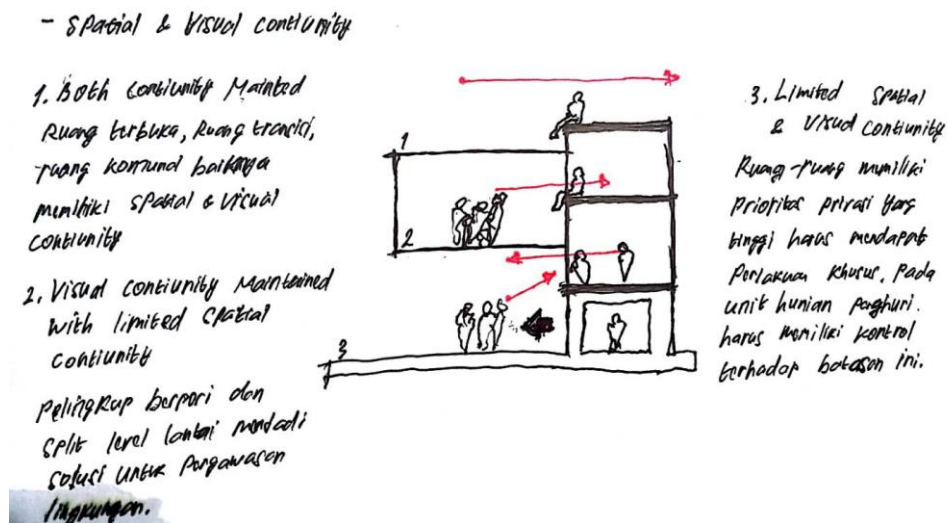 - Spatial & Visual Contiunity
1. Both Contiunity Mainted
Ruang terbuka, Ruang transisi,
ruang komunal baiknya
memiliki Spatial & Visual
Contiunity
2. Visual Contiunity Maintained
with limited Spatial
Contiunity
Pelingkup berpori dan
Split level lantai menjadi
Solusi untuk Pengawasan
lingkungan.
1
2
3
3. Limited Spatial
& Visual Contiunity
Ruang-ruang memiliki
Prioritas privasi yang
tinggi harus mendapat
Perlakuan khusus. Pada
unit hunian penghuni.
harus memiliki kontrol
terhadap batasan ini.